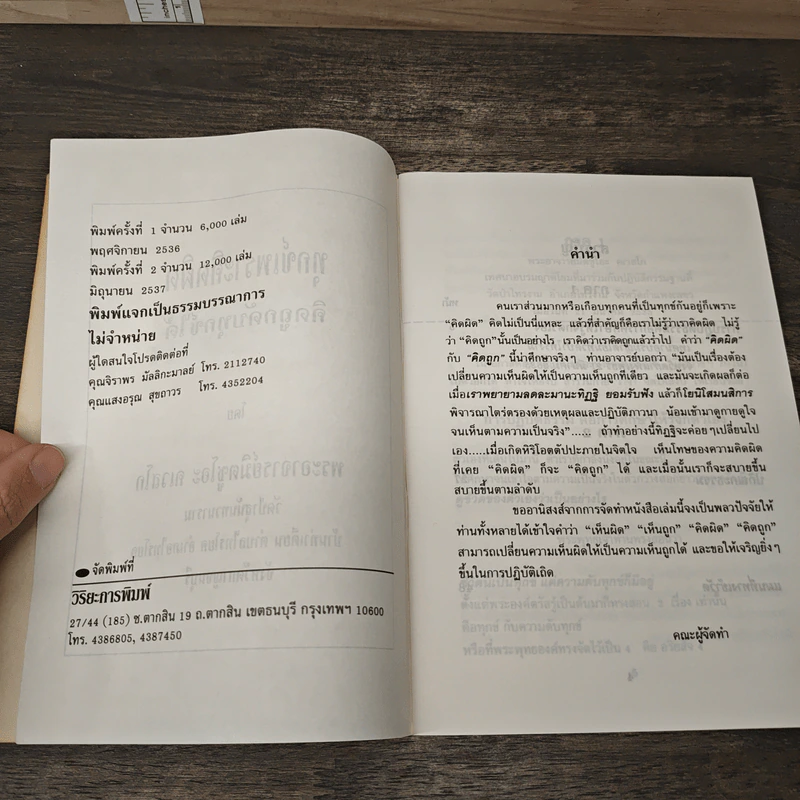 inches 1
พิมพ์ครั้งที่ 1 จำนวน 6,000 เล่ม
พฤศจิกายน 2536
พิมพ์ครั้งที่ 2 จำนวน 12,000 เล่ม
มิถุนายน 2537
พิมพ์แจกเป็นธรรมบรรณาการ
ไม่จำหน่าย
ผู้ใดสนใจโปรดติดต่อที่
คุณจิราพร มัลลิกะมาลย์ โทร. 2112740
คุณแสงอรุณ สุขถาวร โทร. 4352204
จัดพิมพ์ที่
วิริยะการพิมพ์
27/44 (185) ซ.ตากสิน 19 ถ.ตากสิน เขตธนบุรี กรุงเทพฯ 10600
โทร. 4386805, 4387450
คำนำ
คนเราส่วนมากหรือเกือบทุกคนที่เป็นทุกข์กันอยู่ก็เพราะ
“คิดผิด” คิดไม่เป็นนี่แหละ แล้วที่สำคัญก็คือเราไม่รู้ว่าเราคิดผิด ไม่รู้
ว่า “คิดถูก”นั้นเป็นอย่างไร เราคิดว่าเราคิดถูกแล้วร่ำไป คำว่า “คิดผิด”
กับ “คิดถูก” นี้น่าศึกษาจริงๆ ท่านอาจารย์บอกว่า “มันเป็นเรื่องต้อง
เปลี่ยนความเห็นผิดให้เป็นความเห็นถูกทีเดียว และมันจะเกิดผลก็ต่อ
เมื่อเราพยายามลดละมานะทิฏฐิ ยอมรับฟัง แล้วก็โยนิโสมนสิการ
พิจารณาไตร่ตรองด้วยเหตุผลและปฏิบัติภาวนา น้อมเข้ามาดูกายดูใจ
จนเห็นตามความเป็นจริง”...... ถ้าทำอย่างนี้ทิฏฐิจะค่อยๆเปลี่ยนไป
เอง.....เมื่อเกิดหิริโอตตัปปะภายในจิตใจ เห็นโทษของความคิดผิด
ที่เคย “คิดผิด” ก็จะ “คิดถูก” ได้ และเมื่อนั้นเราก็จะสบายขึ้น
สบายขึ้นตามลำดับ
ขออานิสงส์จากการจัดทำหนังสือเล่มนี้จงเป็นพลวปัจจัยให้
ท่านทั้งหลายได้เข้าใจคำว่า “เห็นผิด” “เห็นถูก” “คิดผิด” “คิดถูก”
สามารถเปลี่ยนความเห็นผิดให้เป็นความเห็นถูกได้ และขอให้เจริญยิ่งๆ
ขึ้นในการปฏิบัติเถิด
คณะผู้จัดทำ